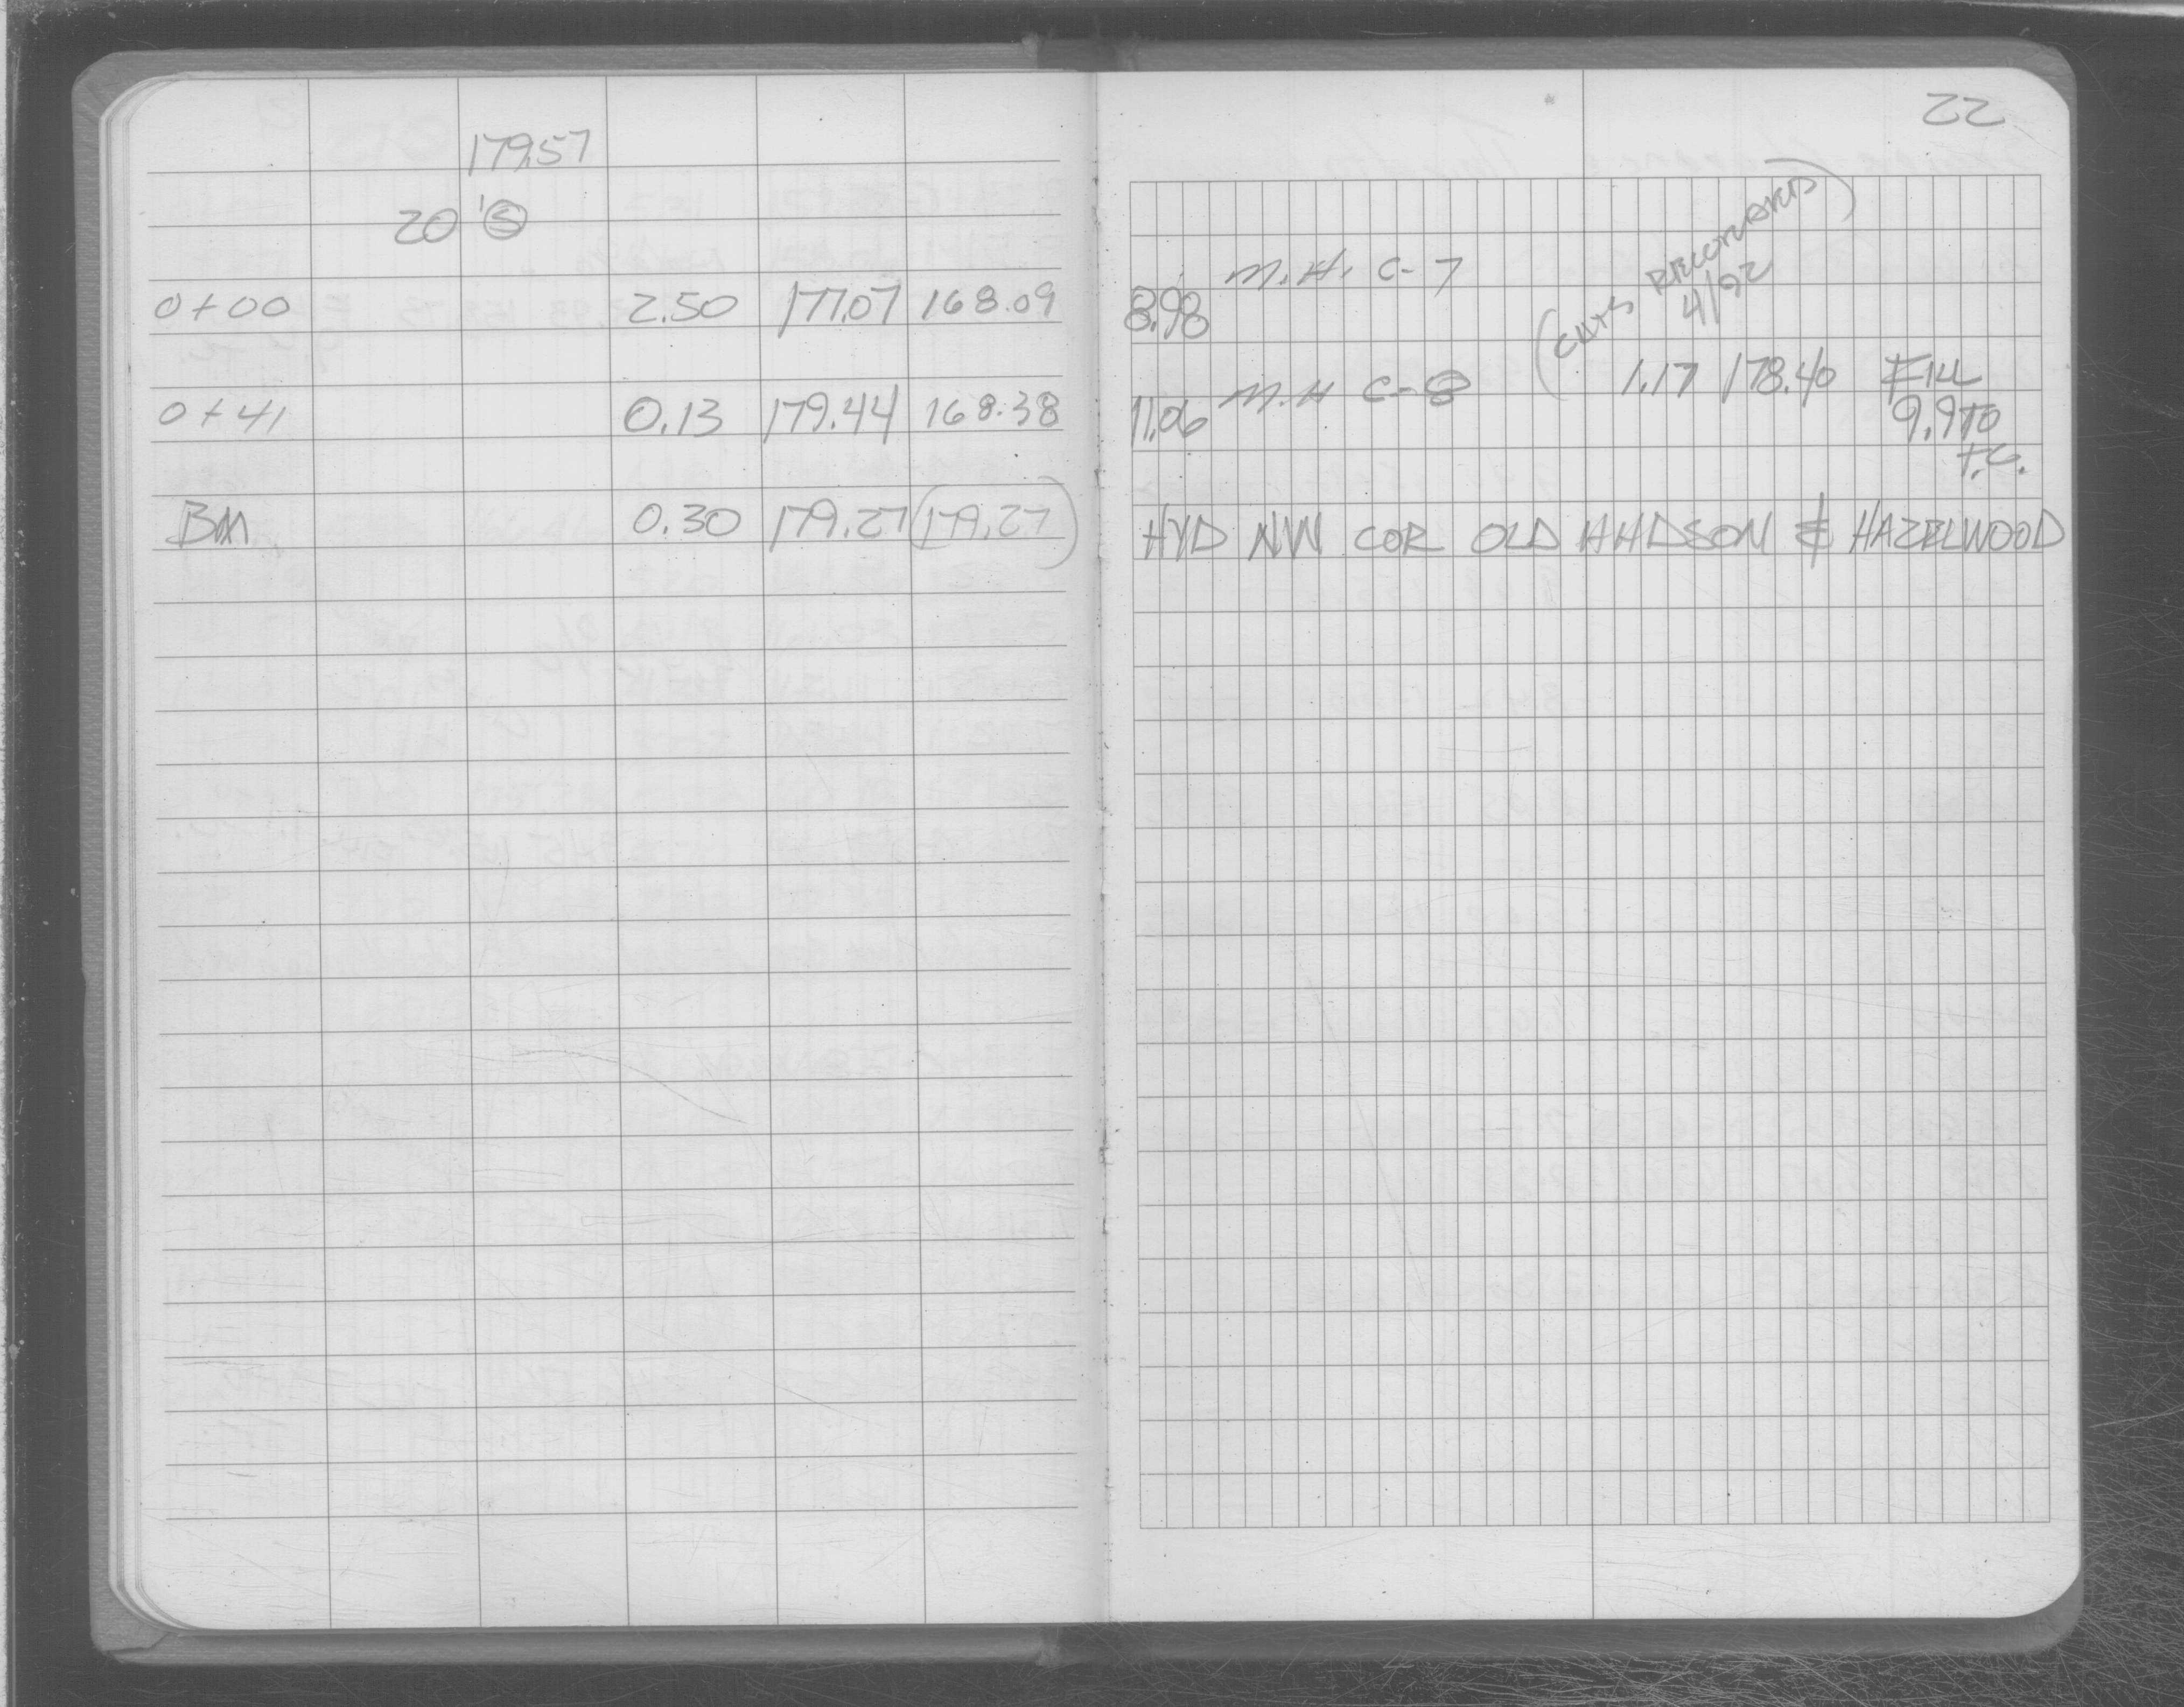 22
179.57
20' Ⓢ
M.H. C-7
0+00 2.50 177.07 168.09 8.98
(CUTS
4/92
1.17 178.40 FILL
M.H C-8
0+41 0.13 179.44 168.38 11.06
9.9 TO
T.C.
BM 0.30 179.27 (179.27) HYD NW COR OLD HUDSON & HAZELWOOD